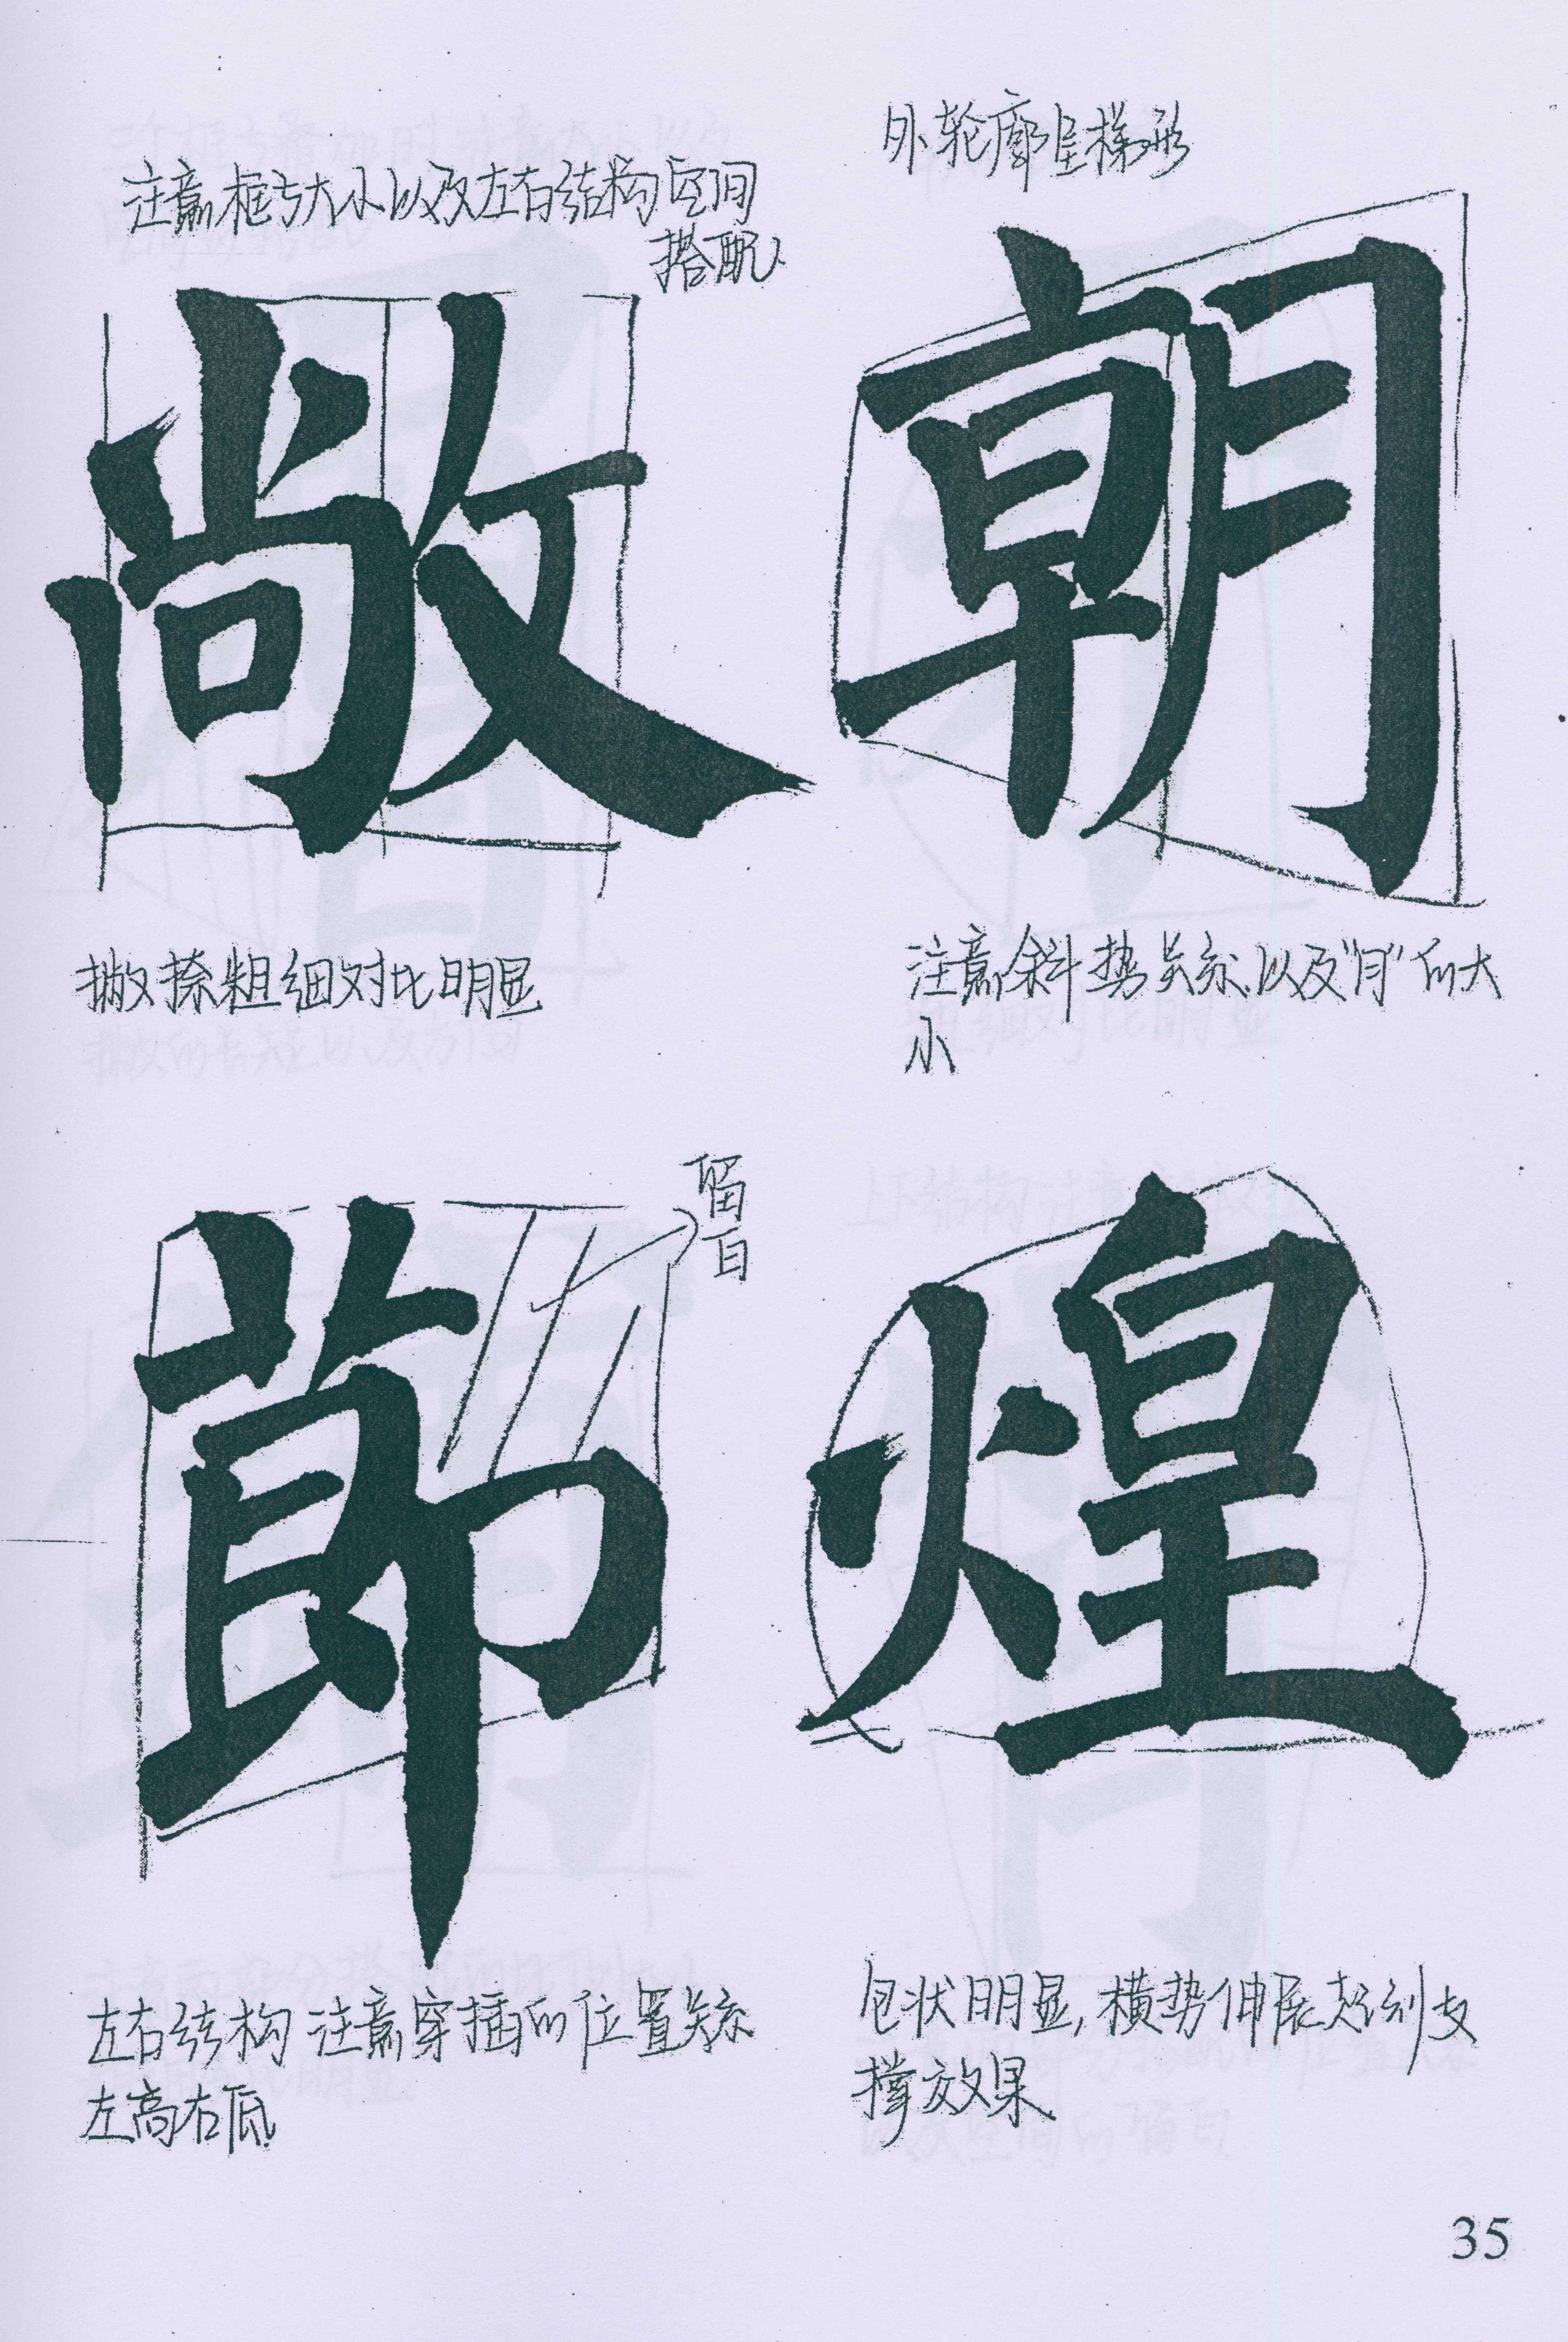 外轮廓呈梯形
注意框与大小以及左右结构空间
搭配
敞 朝
撇捺粗细对比明显
注意斜势关系以及“月”的大
小
留白
節 煌
左右结构 注意穿插的位置关系
左高右低
包状明显,横势伸展起到支
撑效果
35